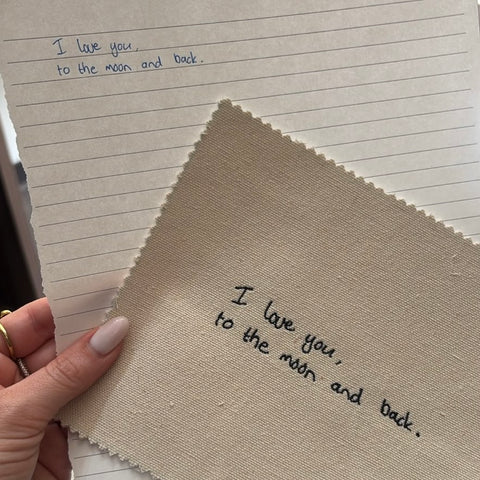 I love you,
to the moon and back.
I love you,
to the moon and back.